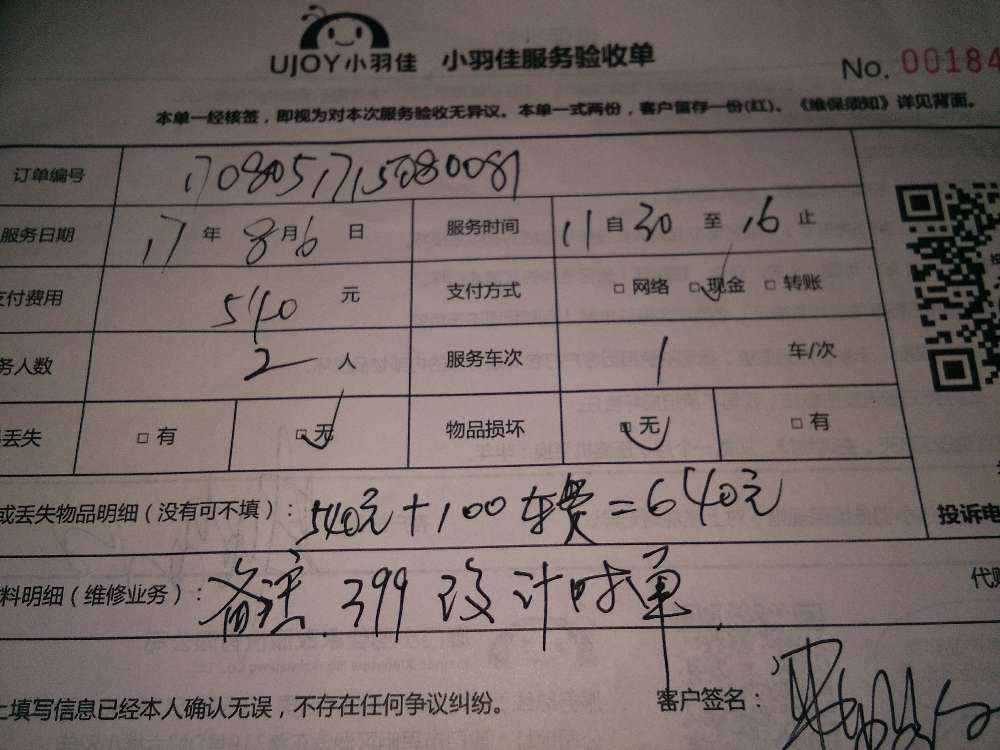 UJOY小羽佳 小羽佳服务验收单 No. 00184
本单一经核签，即视为对本次服务验收无异议。本单一式两份，客户留存一份(红)。《维保须知》详见背面。
订单编号 1708051715080081
服务日期 17 年 8 月 6 日 服务时间 11 自 30 至 16 止
支付费用 540 元 支付方式 □ 网络 □ 现金 □ 转账
务人数 2 人 服务车次 1 车/次
丢失 □ 有 □ 无 物品损坏 □ 无 □ 有
或丢失物品明细（没有可不填）： 540元+100车费=640元
投诉电
料明细（维修业务）： 备注. 399 设计时单
代
填写信息已经本人确认无误，不存在任何争议纠纷。 客户签名：